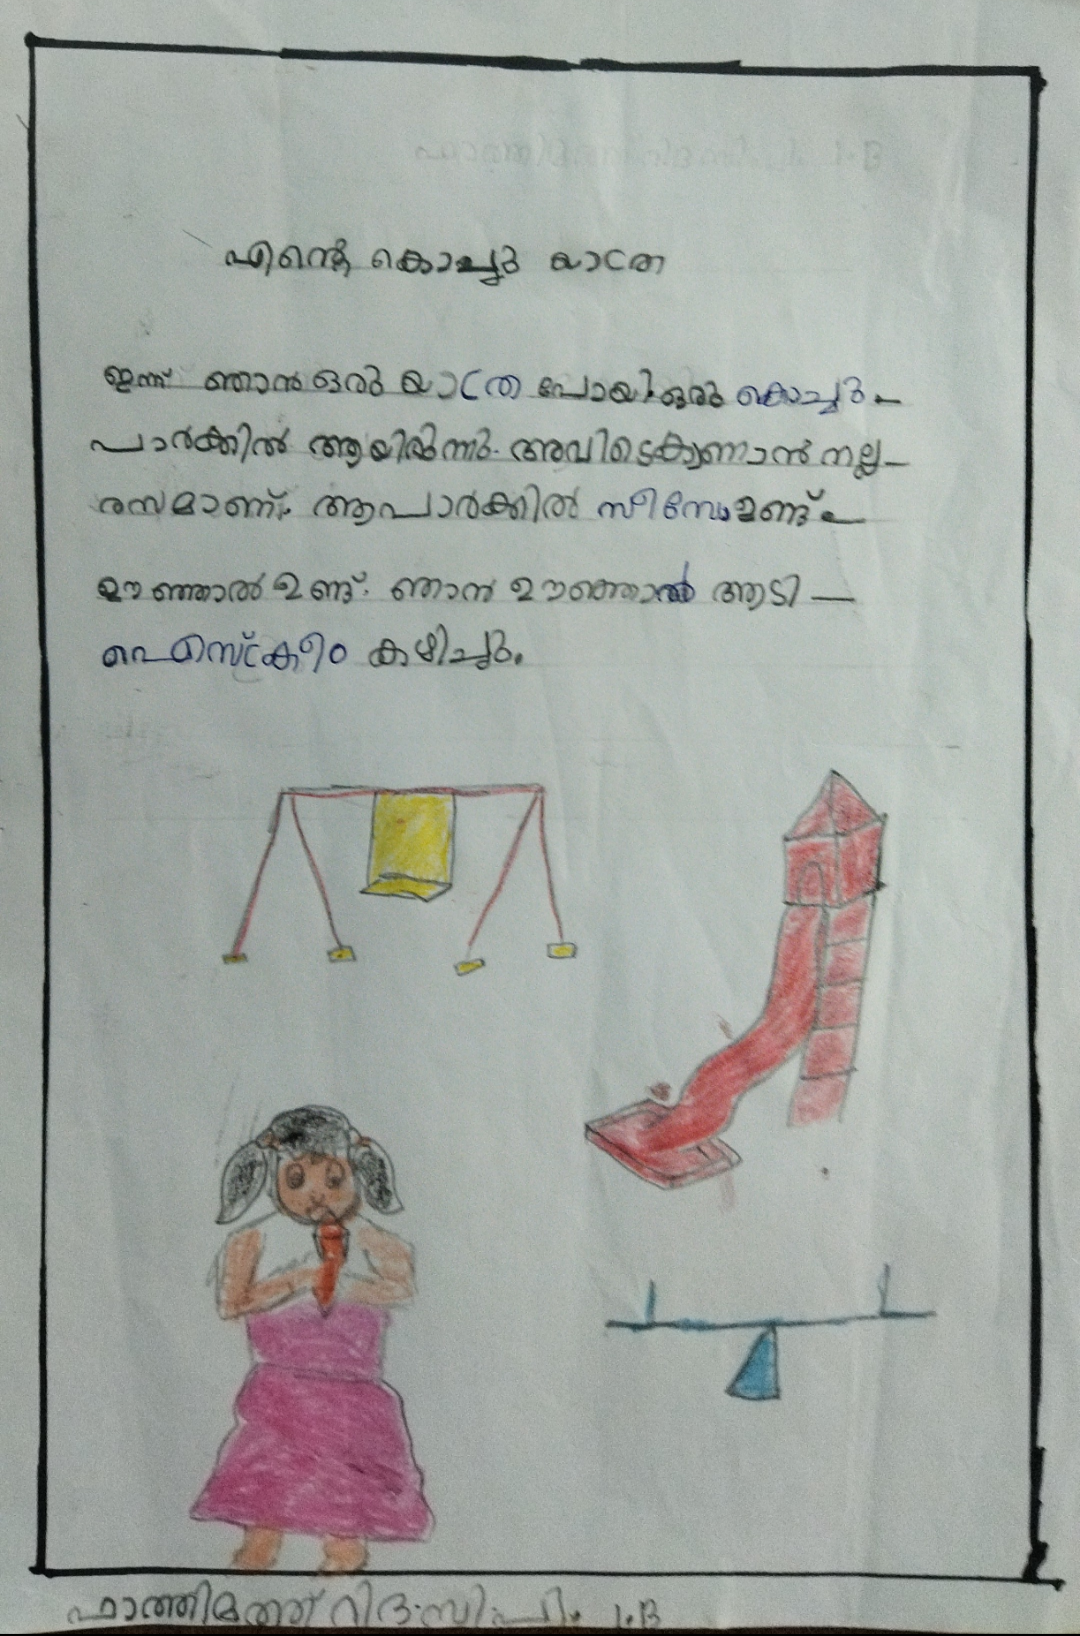 എന്റെ കൊച്ചു യാത്ര
ഇന്ന് ഞാൻ ഒരു യാത്ര പോയി. ഒരു കൊച്ചു
പാർക്കിൽ ആയിരിന്നു. അവിടെ കാണാൻ നല്ല
രസമാണ്. ആ പാർക്കിൽ സീസോ ഉണ്ട്
ഊഞ്ഞാൽ ഉണ്ട്. ഞാൻ ഊഞ്ഞാൽ ആടി
ഐസ്ക്രീം കഴിച്ചു.
ഫാത്തിമത്ത് റിദ. ബി. പി. 1.B